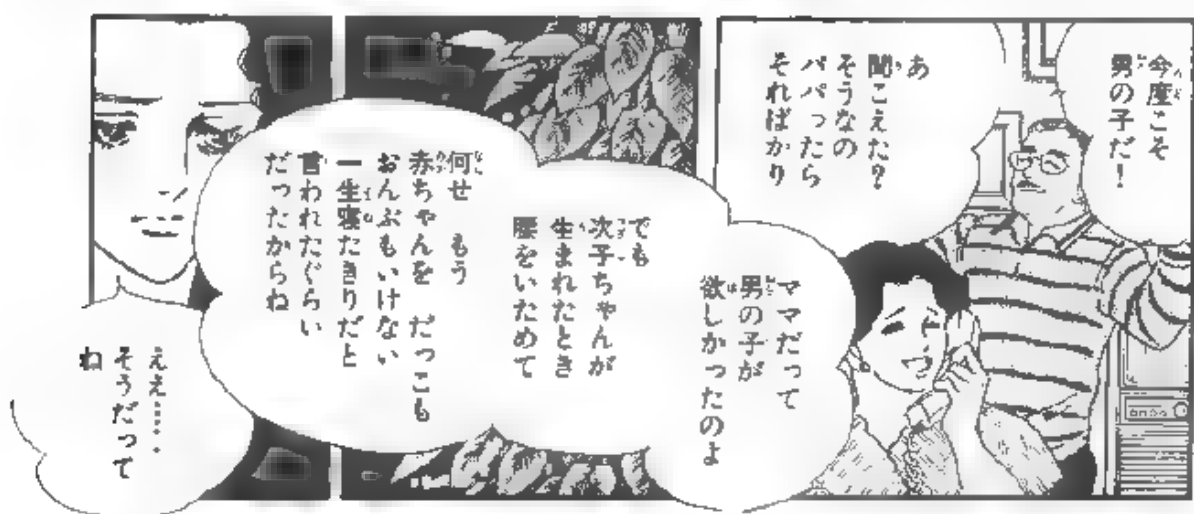 今度こそ
男の子だ！
あ
聞こえた？
そうなの
パパったら
そればかり
ママだって
男の子が
欲しかったのよ
でも
次子ちゃんが
生まれたとき
腰をいためて
何せ　もう
赤ちゃんを　だっこも
おんぶもいけない
一生寝たきりだと
言われたぐらい
だったからね
ええ……
そうだって
ね